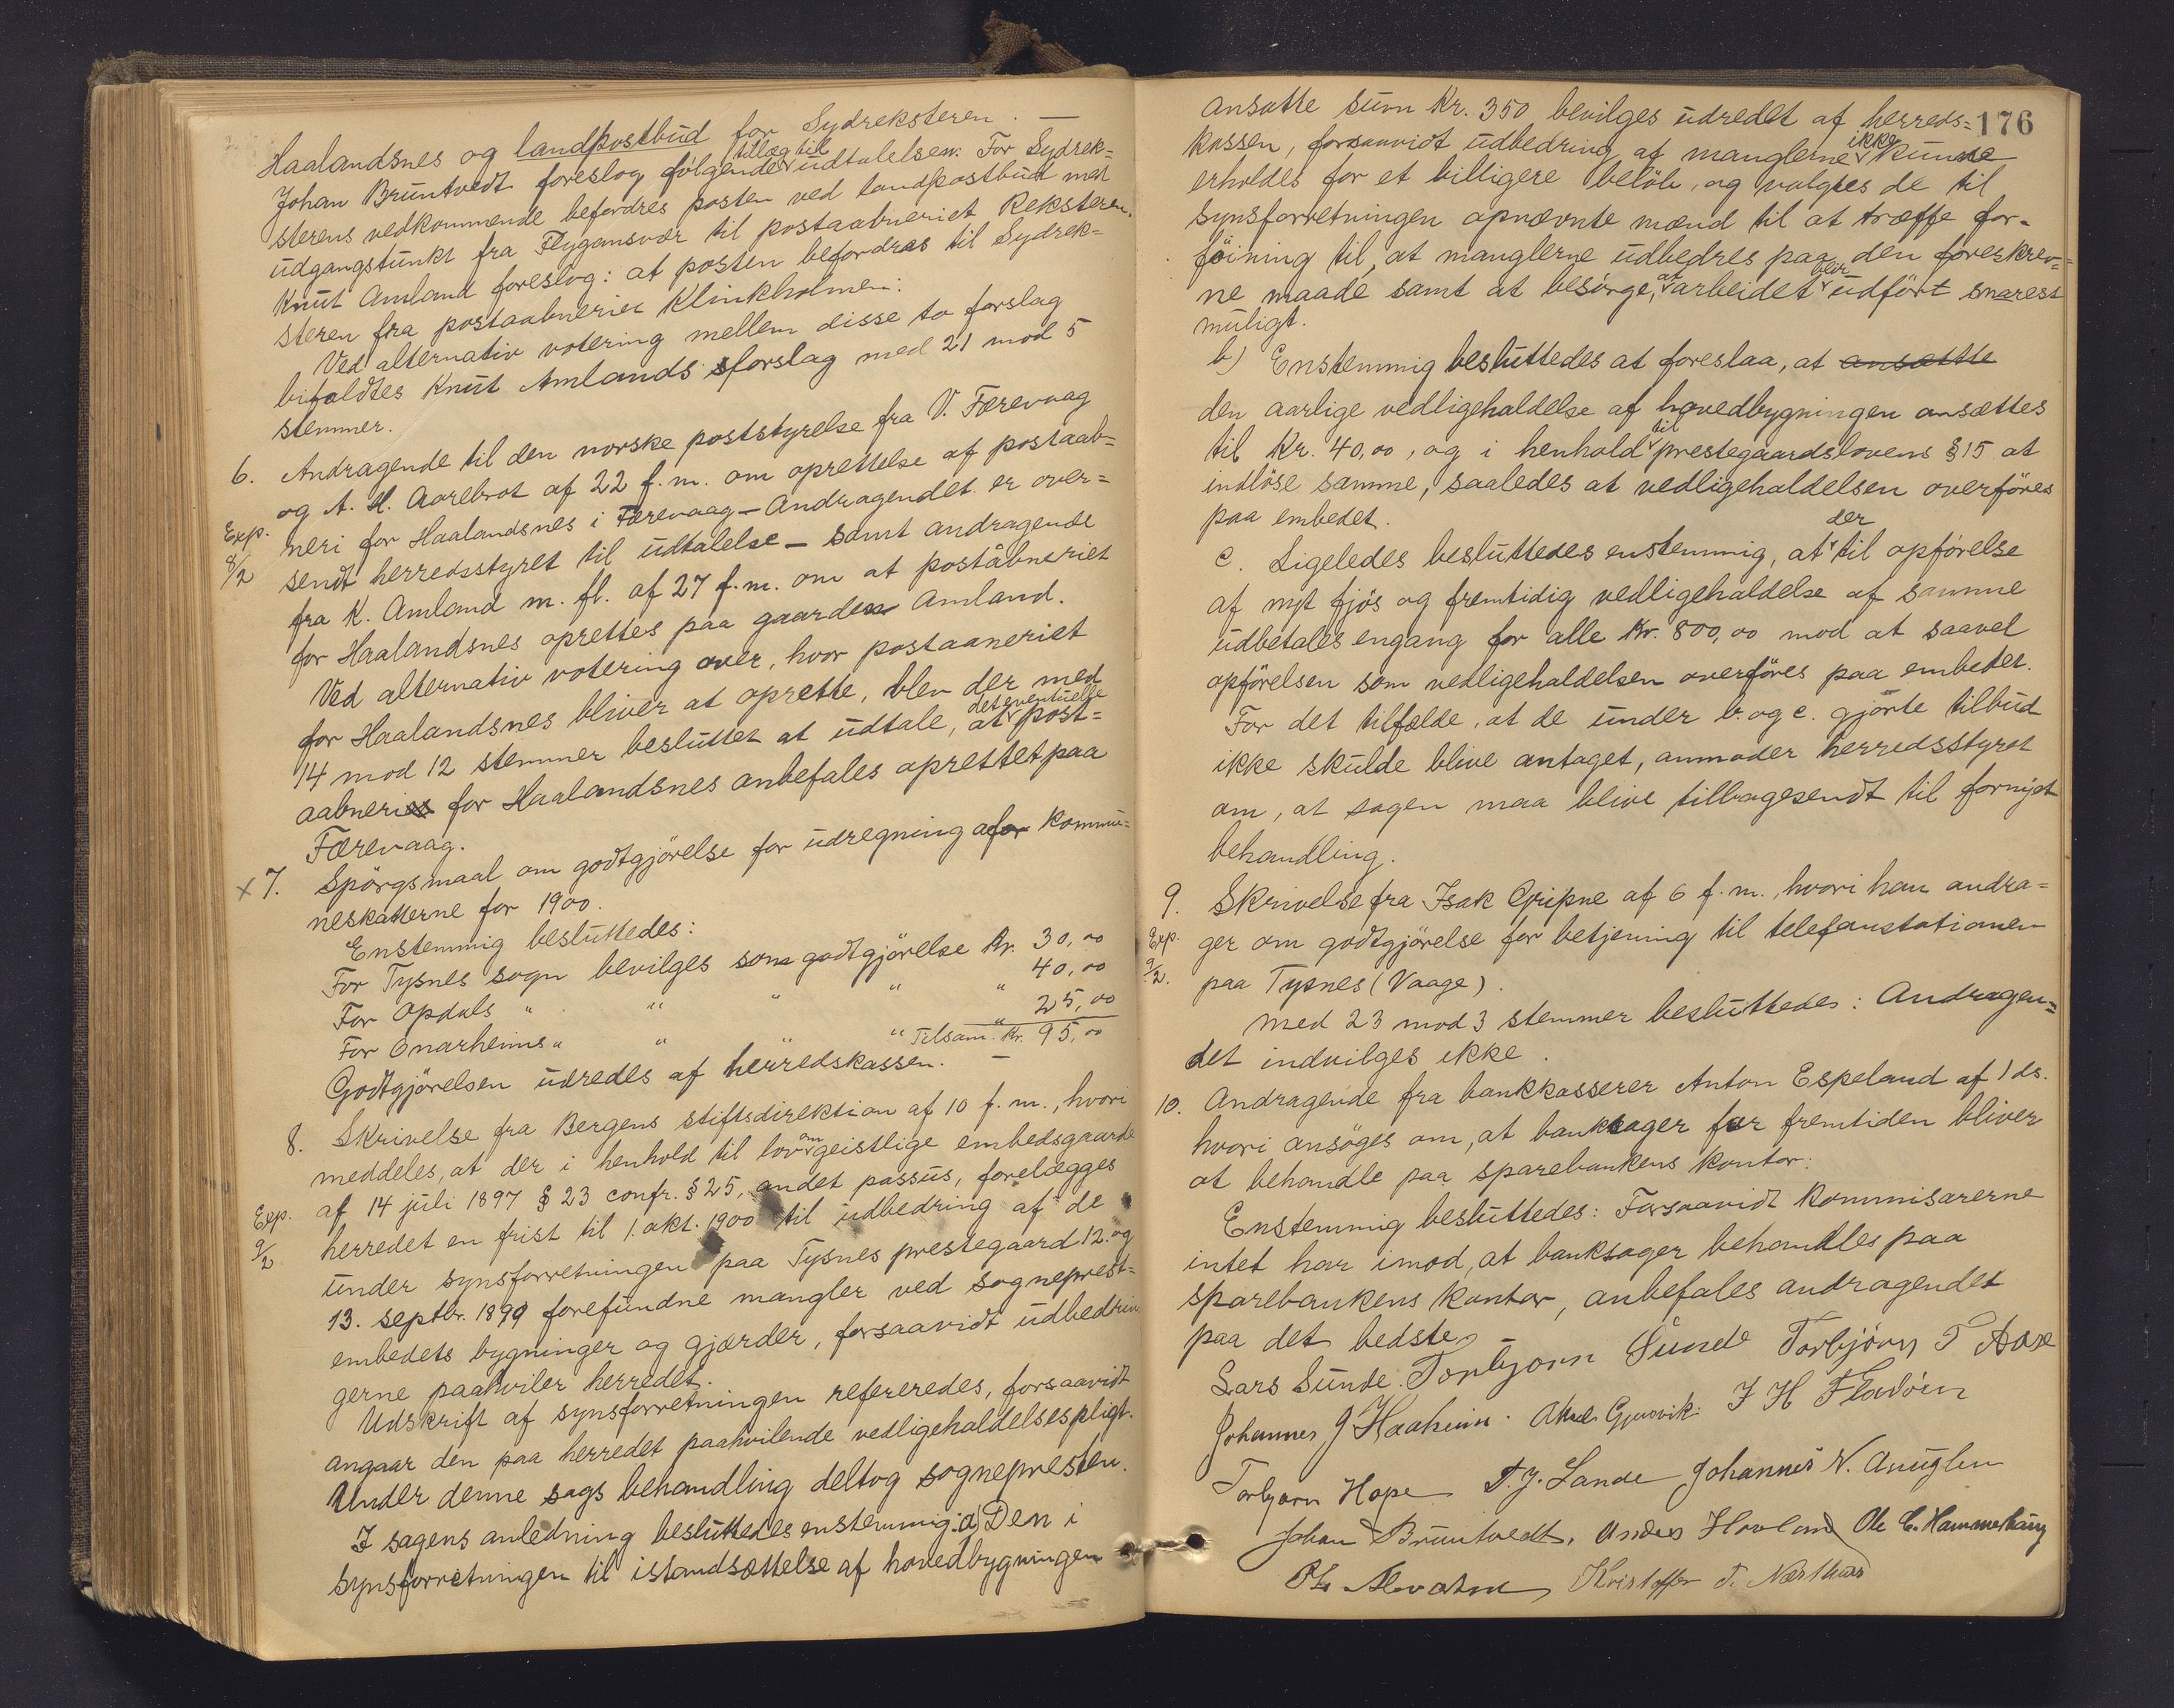 Haalandsnes og landpostbud for Sydreksteren. —
Johan Brüntvedt foreslog følgende tillæg til udtalelsen: For Sydrek=
sterens vedkommende befordres posten ved landpostbud med
udgangstunkt fra Flygansvær til postaabneriet Reksteren.
Knut Amland foreslog: at posten befordres til Sydrek=
steren fra postaabneriet Klinkholmen.
Ved alternativ votering mellem disse to forslag
bifaldtes Knut Amlands forslag med 21 mod 5
stemmer.
6. Andragende til den norske poststyrelse fra V. Færevaag
og A. H. Aarebrot af 22 f. m. om oprettelse af postaab=
Exp. 8/2
neri for Haalandsnes i Færevaag – Andragendet er over=
sendt herredsstyret til udtalelse – samt andragende
fra K. Amland m. fl. af 27 f. m. om at poståbneriet
for Haalandsnes oprettes paa gaarden Amland.
Ved alternativ votering over, hvor postaaneriet
for Haalandsnes bliver at oprette, blev der med
14 mod 12 stemmer besluttet at udtale, at det eventuelle post=
aabneri for Haalandsnes anbefales oprettet paa
Færevaag.
x 7. Spörgsmaal om godtgjörelse for udregning af kommu=
neskatterne for 1900.
Enstemmig besluttedes:
For Tysnes sogn bevilges som godtgjörelse Kr. 30,00
For Opdals " " " " " 40,00
For Onarheims " " " " " 25,00
Tilsam. Kr. 95,00
Godtgjörelsen udredes af herredskassen. —
8. Skrivelse fra Bergens stiftsdirektion af 10 f. m., hvori
meddeles, at der i henhold til lov om geistlige embedsgaarde
af 14 juli 1897 § 23 confr. § 25, andet passus, forelægges
Exp. 9/2
herredet en frist til 1. okt. 1900 til udbedring af de
under synsforretningen paa Tysnes prestegaard 12. og
13. septbr. 1899 forefundne mangler ved sogneprest=
embedets bygninger og gjærder, forsaavidt udbedrin
gerne paahviler herredet.
Udskrift af synsforretningen refereredes, forsaavidt
angaar den paa herredet paahvilende vedligeholdelsespligt.
Under denne sags behandling deltog sognepresten.
I sagens anledning besluttedes enstemmig: a) Den i
synsforretningen til istandsættelse af hovedbygningen
176
ansatte sum Kr. 350 bevilges udredet af herreds=
kassen, forsaavidt udbedring af manglerne ikke kunne
erholdes for et billigere belöb, og valgtes de til
synsforretningen opnævnte mænd til at træffe for=
föining til, at manglerne udbedres paa den foreskrev=
ne maade samt at besörge, at arbeidet blir udfört snarest
muligt.
b) Enstemmig besluttedes at foreslaa, at ansættte
den aarlige vedligeholdelse af hovedbygningen ansættes
til Kr. 40,00, og i henhold til prestegaardslovens § 15 at
indlöse samme, saaledes at vedligeholdelsen overföres
paa embedet.
c. Ligeledes besluttedes enstemmig, at der til opförelse
af nyt fjös og fremtidig vedligeholdelse af samme
udbetales engang for alle Kr. 800,00 mod at saavel
opförelsen som vedligeholdelsen overföres paa embedet.
For det tilfælde, at de under b. og c. gjörte tilbud
ikke skulde blive antaget, anmoder herredsstyret
om, at sagen maa blive tilbagesendt til fornyet
behandling.
9. Skrivelse fra Isak Gripne af 6 f. m., hvori han andra=
Exp. 9/2.
ger om godtgjörelse for betjening til telefonstationen
paa Tysnes (Vaage).
Med 23 mod 3 stemmer besluttedes: Andragen=
det indvilges ikke.
10. Andragende fra bankkasserer Anton Espeland af 1 ds.
hvori ansöges om, at banksager for fremtiden bliver
at behandle paa sparebankens kontor.
Enstemmig besluttedes: Forsaavidt kommisærerne
intet har imod, at banksager behandles paa
sparebankens kontor, anbefales andragendet
paa det bedste. —
Lars Sunde. Torbjørn Sunde Torbjörn T Aase
Johannes J Haaheim. Aksel Gjersvik. J H Fladöen
Torbjørn Hope T. J. Lande Johannes N. Anuglen
Johan Brüntvedt. Anders Hovland Ole C. Hammerhaug
Kristoffer T. Næsthus